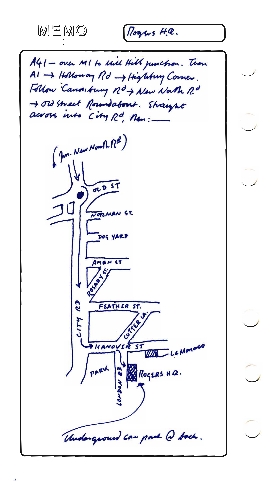 MEMO
ROGERS H.Q.
A41 - over M1 to Mill Hill junction. Then
A1 → Holloway Rd → Highbury Corner.
Follow Canonbury Rd → New North Rd
→ Old Street Roundabout. Straight
across into City Rd, then:
(from New North Rd)
OLD ST
NORMAN ST.
DOG YARD
AMON ST
ROSARY ST.
FEATHER ST.
CITY RD
CUTTER LA.
HANOVER ST
PARK
LONDON RD
ROGERS H.Q.
Underground car park @ back.